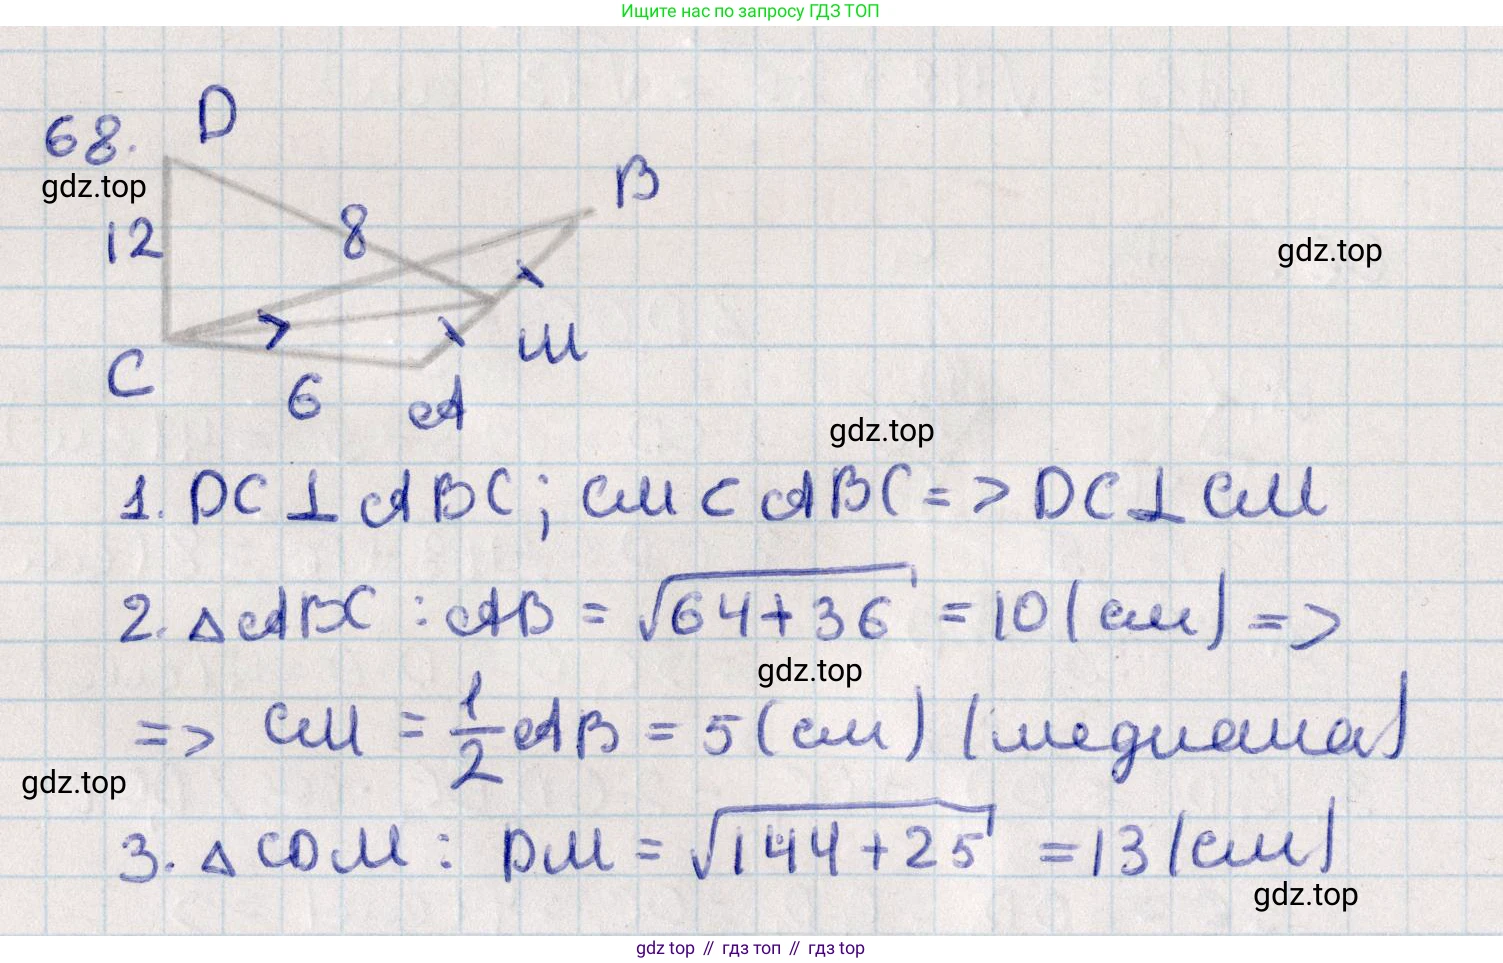 Ищите нас по запросу ГДЗ ТОП
68.
D
gdz.top
B
12
8
gdz.top
M
C
6
A
gdz.top
1. DC ⊥ ABC; CM ⊂ ABC => DC ⊥ CM
2. △ABC : AB = √64+36 = 10 (см) =>
gdz.top
=> CM = 1/2 AB = 5 (см) (медиана)
gdz.top
3. △CDM : DM = √144+25 = 13 (см)
gdz.top
gdz top // гдз топ // гдз top